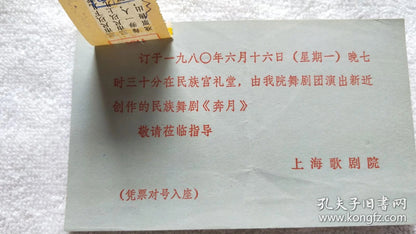 订于一九八〇年六月十六日（星期一）晚七
时三十分在民族宫礼堂，由我院舞剧团演出新近
创作的民族舞剧《奔月》
敬请莅临指导
上海歌剧院
（凭票对号入座）
孔夫子旧书网
www.kongfz.com